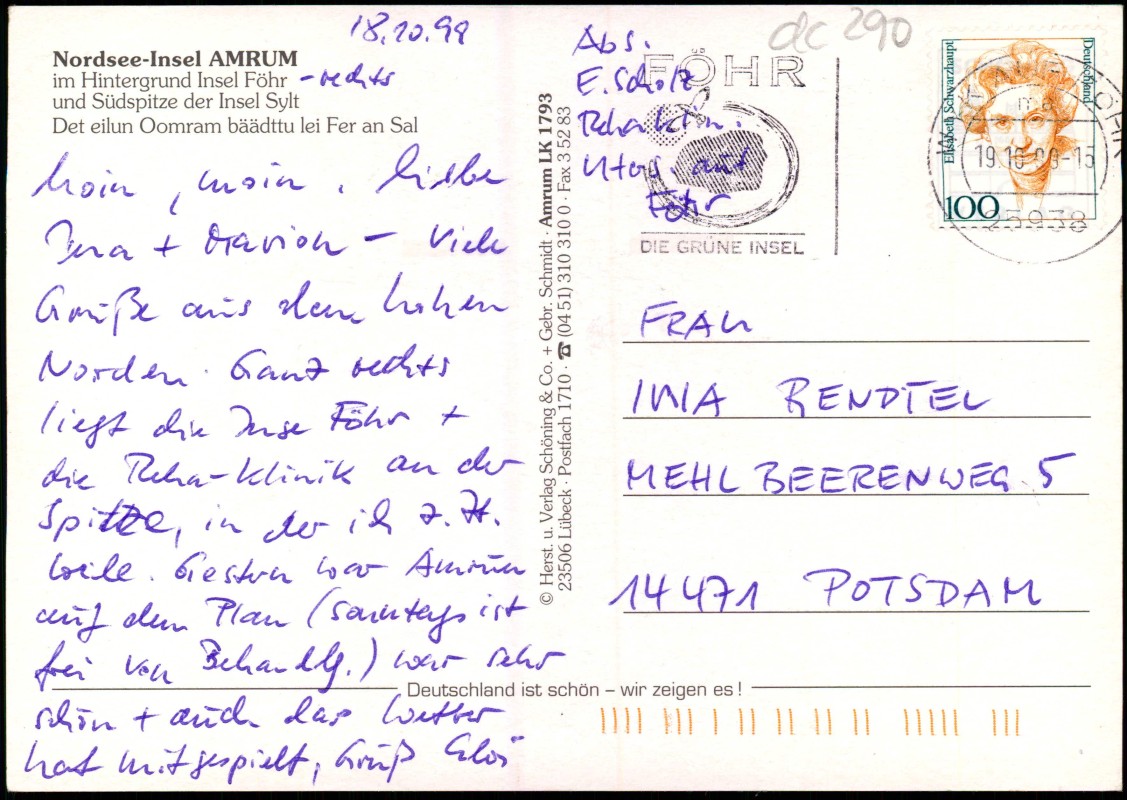 18.10.99
Nordsee-Insel AMRUM
im Hintergrund Insel Föhr - rechts
und Südspitze der Insel Sylt
Det eilun Oomram bäädttu lei Fer an Sal
Moin, moin, liebe
Ina + Marion - Viele
Grüße aus dem hohen
Norden. Ganz rechts
liegt die Insel Föhr +
die Reha-Klinik an der
Spitze, in der ich z.Zt.
weile. Gestern war Amrum
auf dem Plan (sonntags ist
frei von Behandlg.) war sehr
schön + auch das Wetter
hat mitgespielt, Gruß
© Herst. u. Verlag Schöning & Co. + Gebr. Schmidt · Amrum LK 1793
23506 Lübeck · Postfach 1710 · ☎ (04 51) 310 310 0 · Fax 3 52 83
Deutschland ist schön – wir zeigen es!
dc 290
Abs.
E. Scholz
Rehaklin.
Uters. auf
Föhr
FÖHR
DIE GRÜNE INSEL
Elisabeth Schwarzhaupt
Deutschland
100
WYK AUF FÖHR
ma
19.10.99-15
25938
FRAU
INA BENDTEL
MEHLBEERENWEG 5
14471 POTSDAM